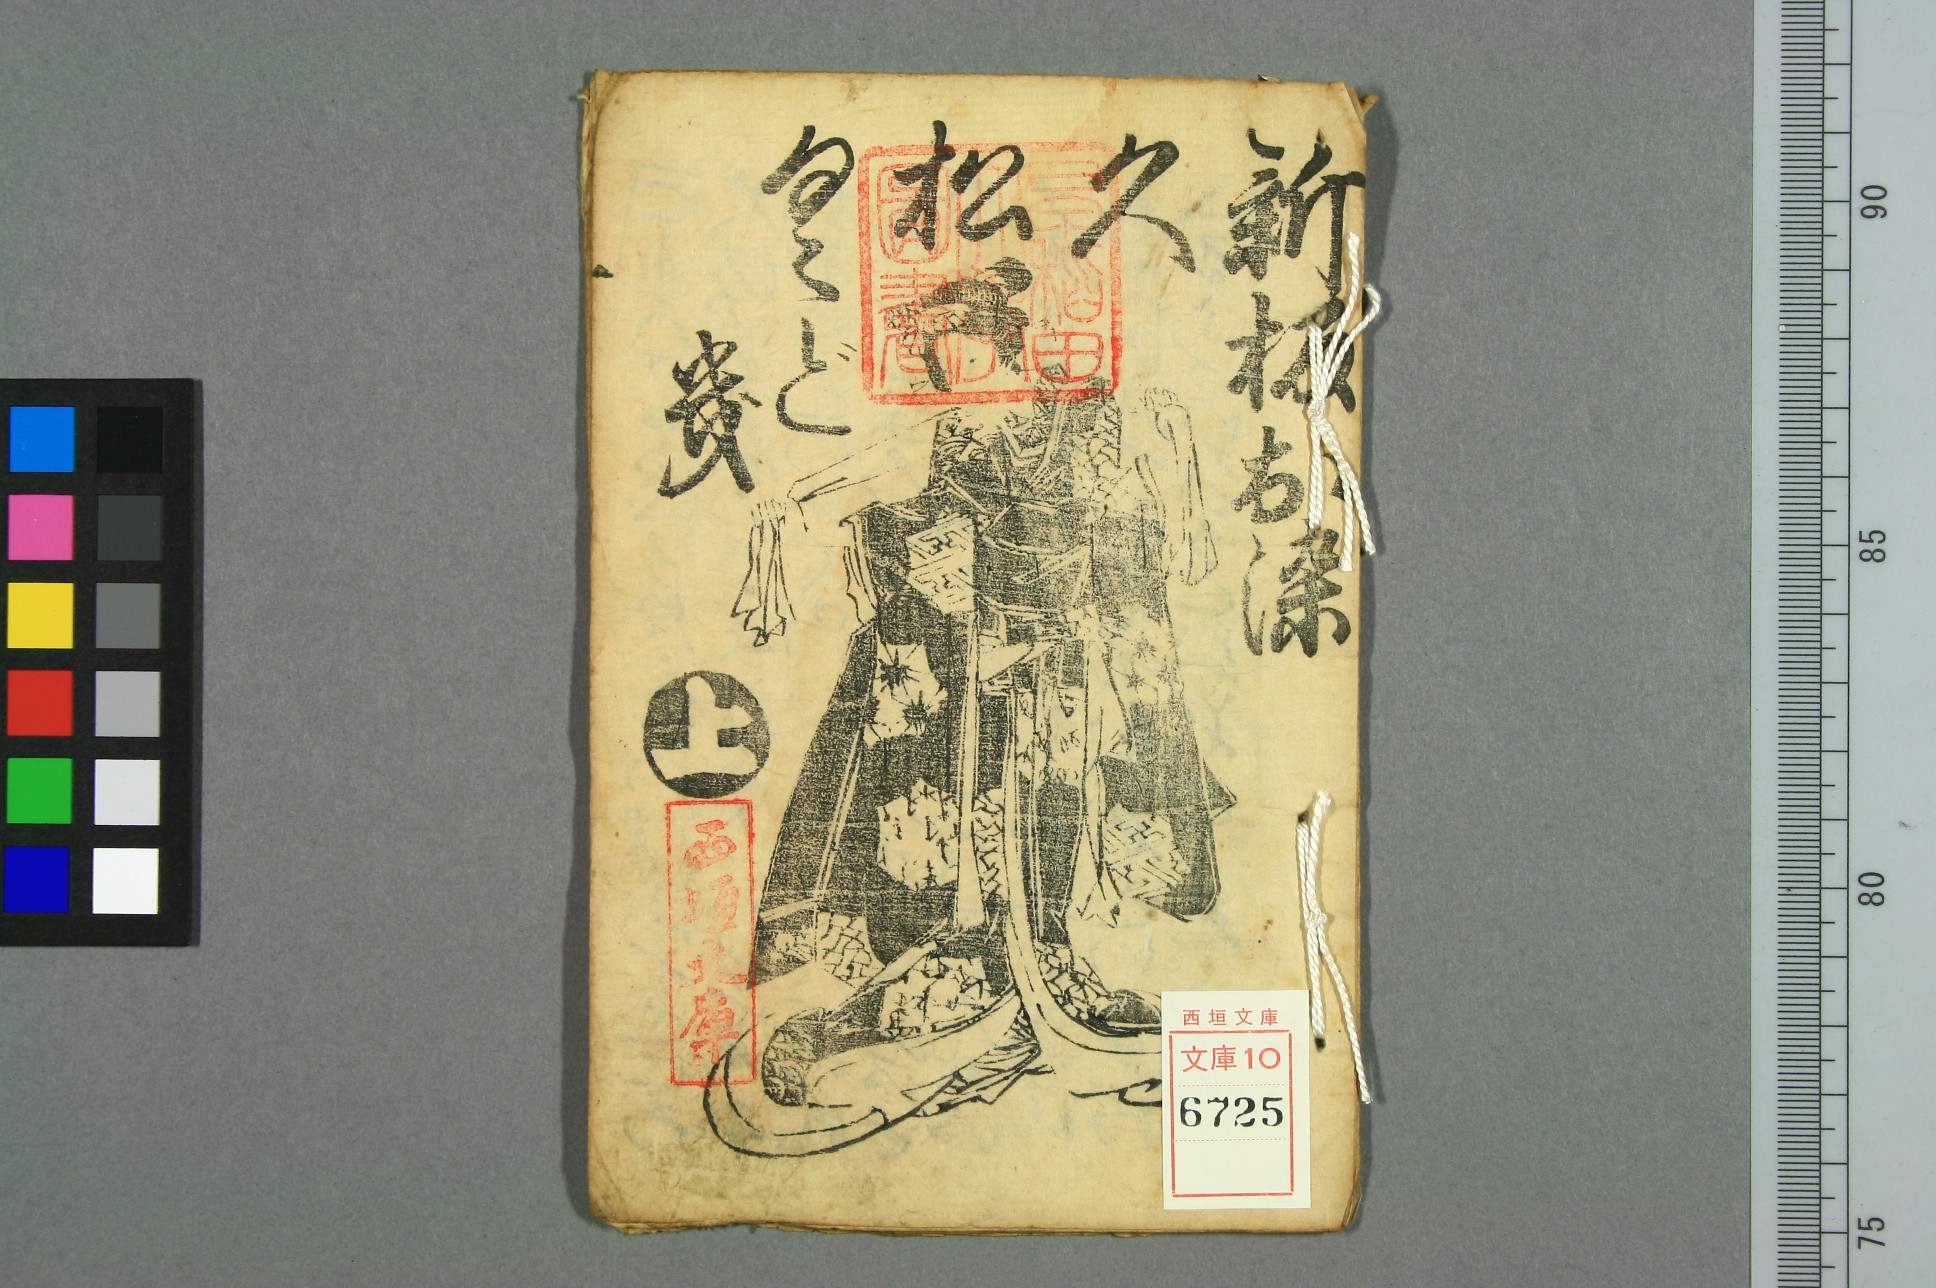 新板お染
久
松
くどき
上
早稲田大学図書
西垣文庫
西垣文庫
文庫10
6725
90
85
80
75